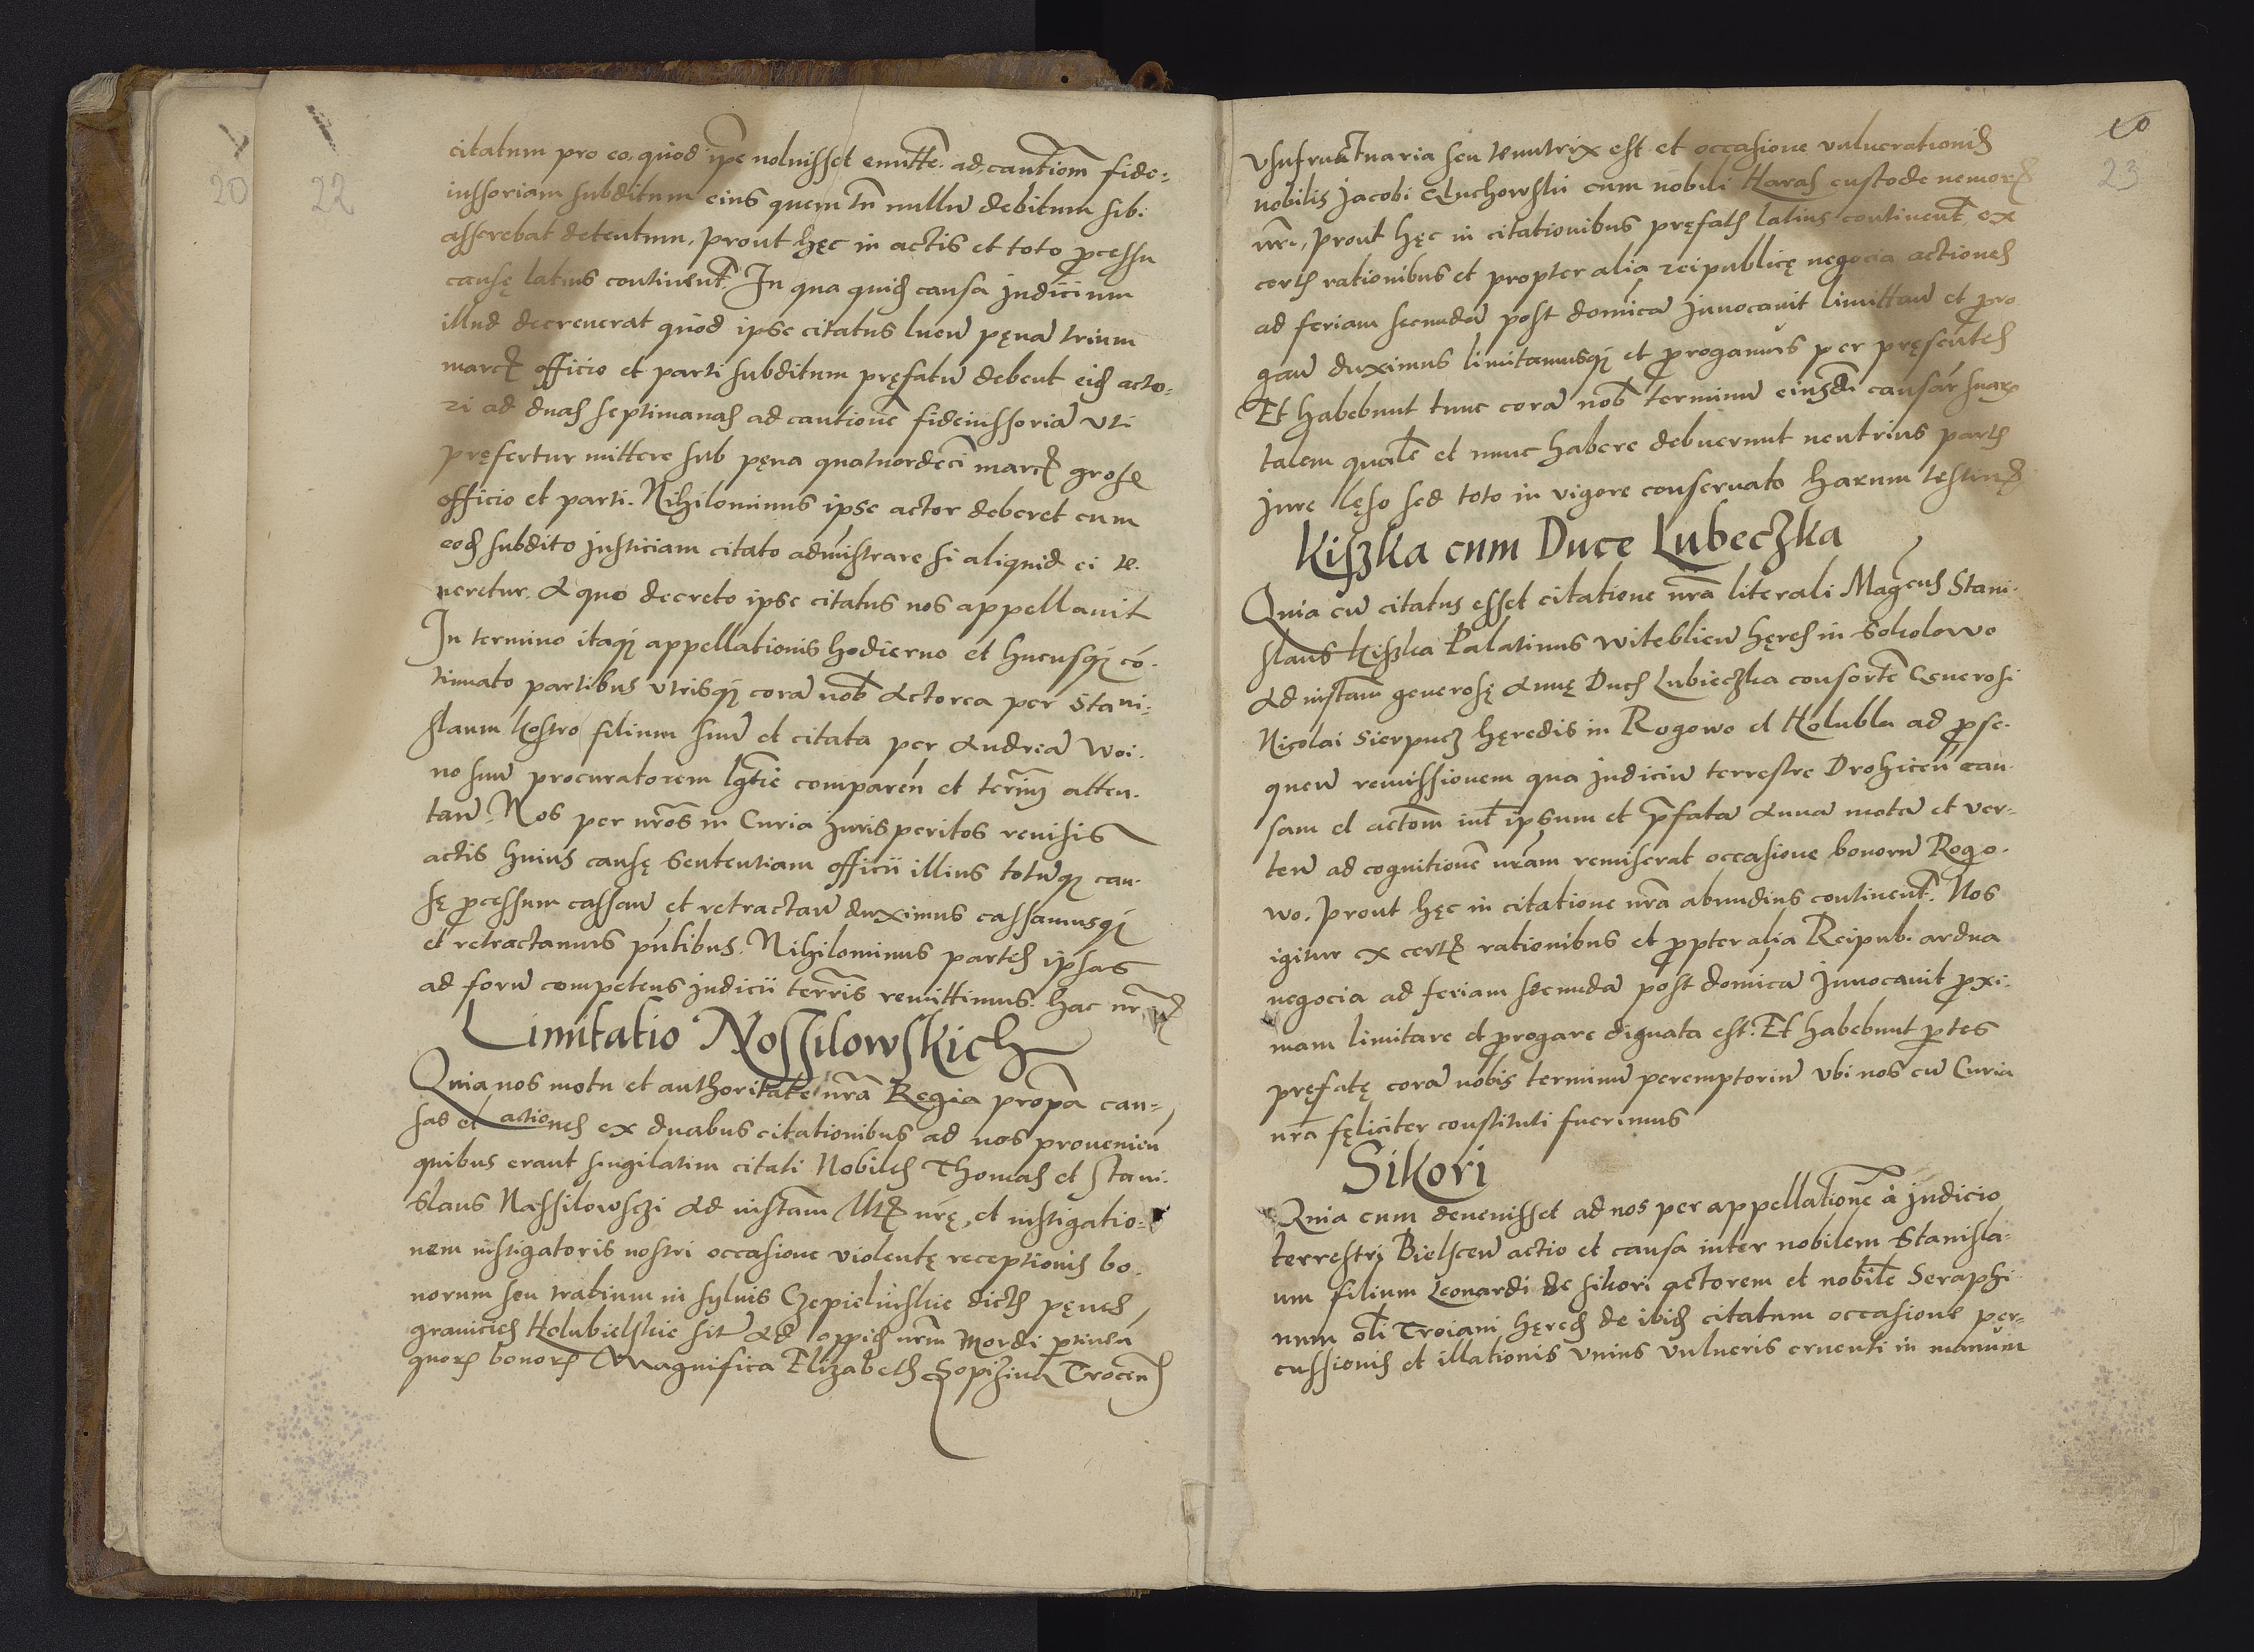 20
22
citatum pro eo, quod ipse noluisset emitte: ad cautiom fide-
iussoriam subditum eius quem tn nullū debitum sibi
asserebat detentum, prout hęc in actis et toto pcessu
causę latius continent. In qua quid causa judicium
illud decreverat quod ipse citatus luen pęnā trium
marc officio et parti subditum pręfatū debent eid acto-
ri ad duas septimanas ad cautionē fideiussoriā vti
pręfertur mittere sub pęna quatuordeci marc gross
officio et parti. Nihilominus ipse actor deberet cum
eod subdito justiciam citato admistrare si aliquid ei te-
neretur. A quo decreto ipse citatus nos appellauit
In termino itaq appellationis hodierno et hucusq cō-
tinuato partibus vtrisq corā nob Actorea per Stani-
slaum Kostro filium suū et citata per Andreā Woi-
no suū procuratorem lgtie comparen et termī atten-
tan. Nos per nros in Curia juris peritos reuisis
actis huius causę sententiam officii illius totūq cau-
sę pcessum cassan et retractan duximus cassamusq
et retractamus pntibus. Nihilominus partes ipsas
ad forū competens judicii terris remittimus. hac nr
Limitatio Nossilowskich
Quia nos motu et authoritate nrā Regia propā cau-
sas et actiones ex duabus citationibus ad nos prouenien
quibus erant singilatim citati Nobiles Thomas et Stani-
slaus Nassilowsczi Ad instam Mtis nrę, et instigatio-
nem instigatoris nostri occasione violentę receptionis bo-
norum seu trabium in syluis Czepielinskie dictis penes
granicies Holubielskie sit Ad oppid nrm Mordi ptinēn
quor bonor Magnifica Elizabeth Sopizina Trocen
23
Vsufructuaria seu tenutrix est et occasione vulnerationis
nobilis Jacobi Gluchowski cum nobili Haras custode nemor
nri, prout hęc in citationibus pręfatis latius continent, ex
certis rationibus et propter alia reipublicę negocia actiones
ad feriam secundā post domicā Inuocauit limittan et pro
gan duximus limitamusq et progamus per pręsentes
Et habebunt tunc corā nob terminū eiusdi causar suar
talem qualē et nunc habere debuerunt neutrius partis
jure lęso sed toto in vigore conseruato harum testim
Kiszka cum Duce Lubeczka
Quia cū citatus esset citatione nrā literali Mageus Stani-
slaus Kiszka Palatinus Witeblien hęres in Sokolowo
Ad instam generosę Annę Duc Lubieczka consortē Generosi
Nicolai Sierpucz hęredis in Rogowo et Holubla ad pse-
quen remissionem qua judiciū terrestre Drohicen cau-
sam et actom int ipsum et pfatā Annā motā et ver-
ten ad cognitionē nram remiserat occasione bonorū Rogo-
wo. prout hęc in citatione nrā abundius continent. Nos
igitur ex certis rationibus et ppter alia Reipub. ardua
negocia ad feriam secundā post domicā Inuocauit pxi-
mam limitare et progare dignata est. Et habebunt ptes
pręfatę corā nobis terminū peremptoriū vbi nos cū Curia
nra fęliciter constituti fuerimus
Sikori
Quia cum deuenisset ad nos per appellationē à judicio
terrestri Bielscen actio et causa inter nobilem Stanisla-
um filium Leonardi de Sikori actorem et nobilē Seraphi-
num oli Troiani hęred de ibid citatum occasione per-
cussionis et illationis vnius vulneris cruenti in manum